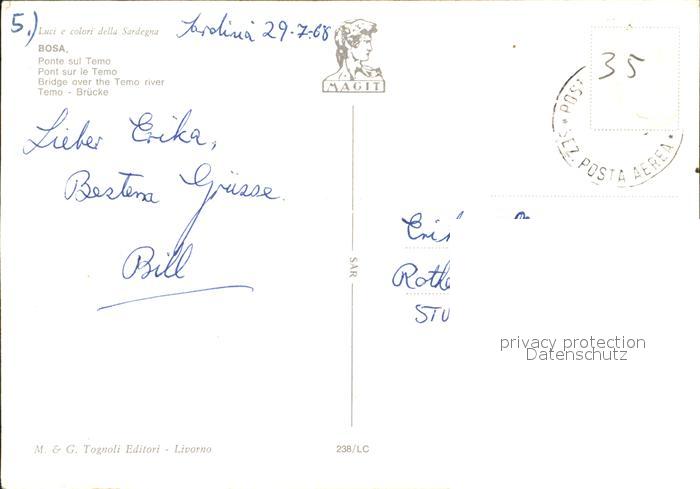 5.) Luci e colori della Sardegna
Sardinia 29-7-68
BOSA,
Ponte sul Temo
Pont sur le Temo
Bridge over the Temo river
Temo - Brücke
MAGIT
35
SEZ. POSTA AEREA
Lieber Erika,
Bestena Grüsse.
Bill
SAR
Rothe
STU
privacy protection
Datenschutz
M. & G. Tognoli Editori - Livorno
238/LC